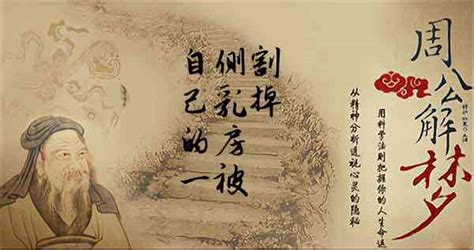 自己的一
侧乳房被
割掉
周公解梦
用科学法则把握你的人生命运
从精神分析透视心灵的隐秘